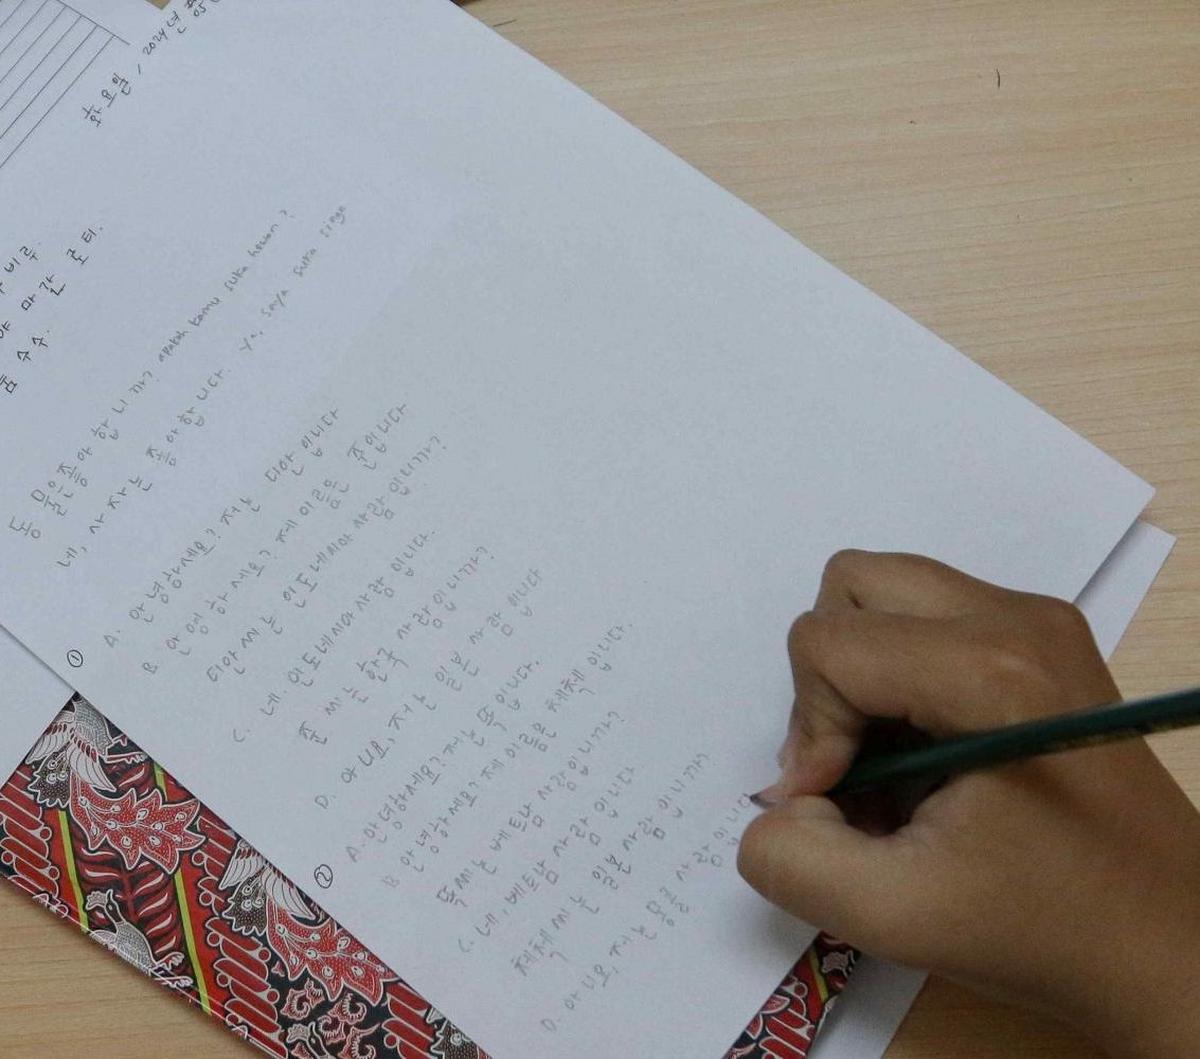 화요일, 2024년
비루.
마깐 로티.
수수.
동물은 좋아합니까? apakah kamu suka hewan?
네, 사자는 좋아합니다. Ya, saya suka singa
①
A. 안녕하세요? 저는 디안 입니다
B. 안녕하세요? 제 이름은 준입니다
디안 씨는 인도네시아 사람입니까?
C. 네. 인도네시아 사람 입니다.
준 씨는 한국 사람입니까?
D. 아니요, 저는 일본 사람 입니다
②
A. 안녕하세요? 저는 뚝 입니다.
B 안녕하세요? 제 이름은 체첵 입니다.
뚝씨는 베트남 사람입니까?
C. 네, 베트남 사람 입니다
체첵 씨는 일본 사람 입니까?
D. 아니요, 저는 몽골 사람 입니다